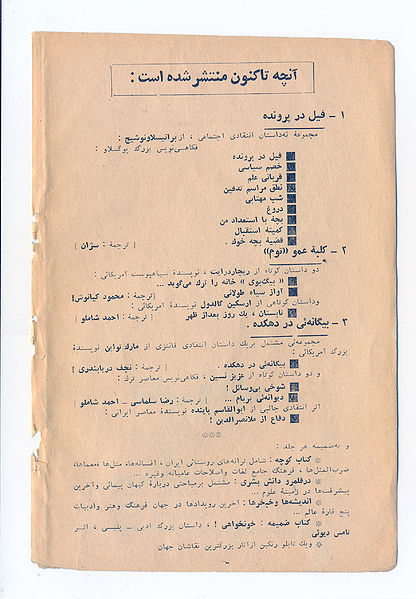 آنچه تاکنون منتشر شده است :
۱ - فیل در پرونده
مجموعهٔ نه‌داستان انتقادی اجتماعی ، از برانیسلاونوشیچ :
فکاهی‌نویس بزرگ یوگسلاو :
فیل در پرونده
خصم سیاسی
قربانی علم
نطق مراسم تدفین
شب مهتابی
دروغ
بچهٔ با استعداد من
کمیتهٔ استقبال
قضیهٔ بچه خوک . [ ترجمهٔ : سـژان ]
۲ - کلبهٔ عمو «توم»
دو داستان کوتاه از ریچاردرایت ، نویسندهٔ سیاهپوست امریکائی :
« بیگ‌بوی » خانه را ترک می‌گوید ...
آواز سیاه طولانی [ترجمهٔ : محمود کیانوش]
وداستان کوتاهی از ارسکین کالدول نویسندهٔ امریکائی :
تابستان ، یک روز بعداز ظهر [ ترجمهٔ : احمد شاملو ]
۳ - بیگانه‌ئی در دهکده .
مجموعه‌ئی مشتمل بریک داستان انتقادی فانتزی از مارک تواین نویسندهٔ
بزرگ آمریکائی :
بیگانه‌ئی در دهکده . [ ترجمهٔ : نجف دریابندری ]
و دو داستان کوتاه از عزیز نسین ، فکاهی‌نویس معاصر ترک :
شوخی بی‌وسائل !
دیوانه‌ئی بربام ... [ ترجمهٔ : رضا سلماسی - احمد شاملو ]
اثر انتقادی جالبی از ابوالقاسم پاینده نویسندهٔ معاصر ایرانی :
دفاع از ملانصرالدین !
***
و به‌ضمیمهٔ هر جلد :
* کتاب کوچه : شامل ترانه‌های روستائی ایران ، افسانه‌ها، مثل‌ها ،معماها،
ضرب‌المثل‌ها ، فرهنگ جامع لغات واصلاحات عامیانه وغیره ...
* درقلمرو دانش بشری : مشتمل برمباحثی دربارهٔ کیهان پیمائی وآخرین
پیشرفت‌ها در زمینهٔ علوم ...
* اندیشه‌ها وخبرها : آخرین رویدادها در جهان فرهنگ وهنر وادبیات
پنج قارهٔ عالم ...
* کتاب ضمیمه : خونخواهی ! ، داستان بزرگ ادبی - پلیسی ، اثـر
ویک تابلو رنگین ازآثار بزرگترین نقاشان جهان